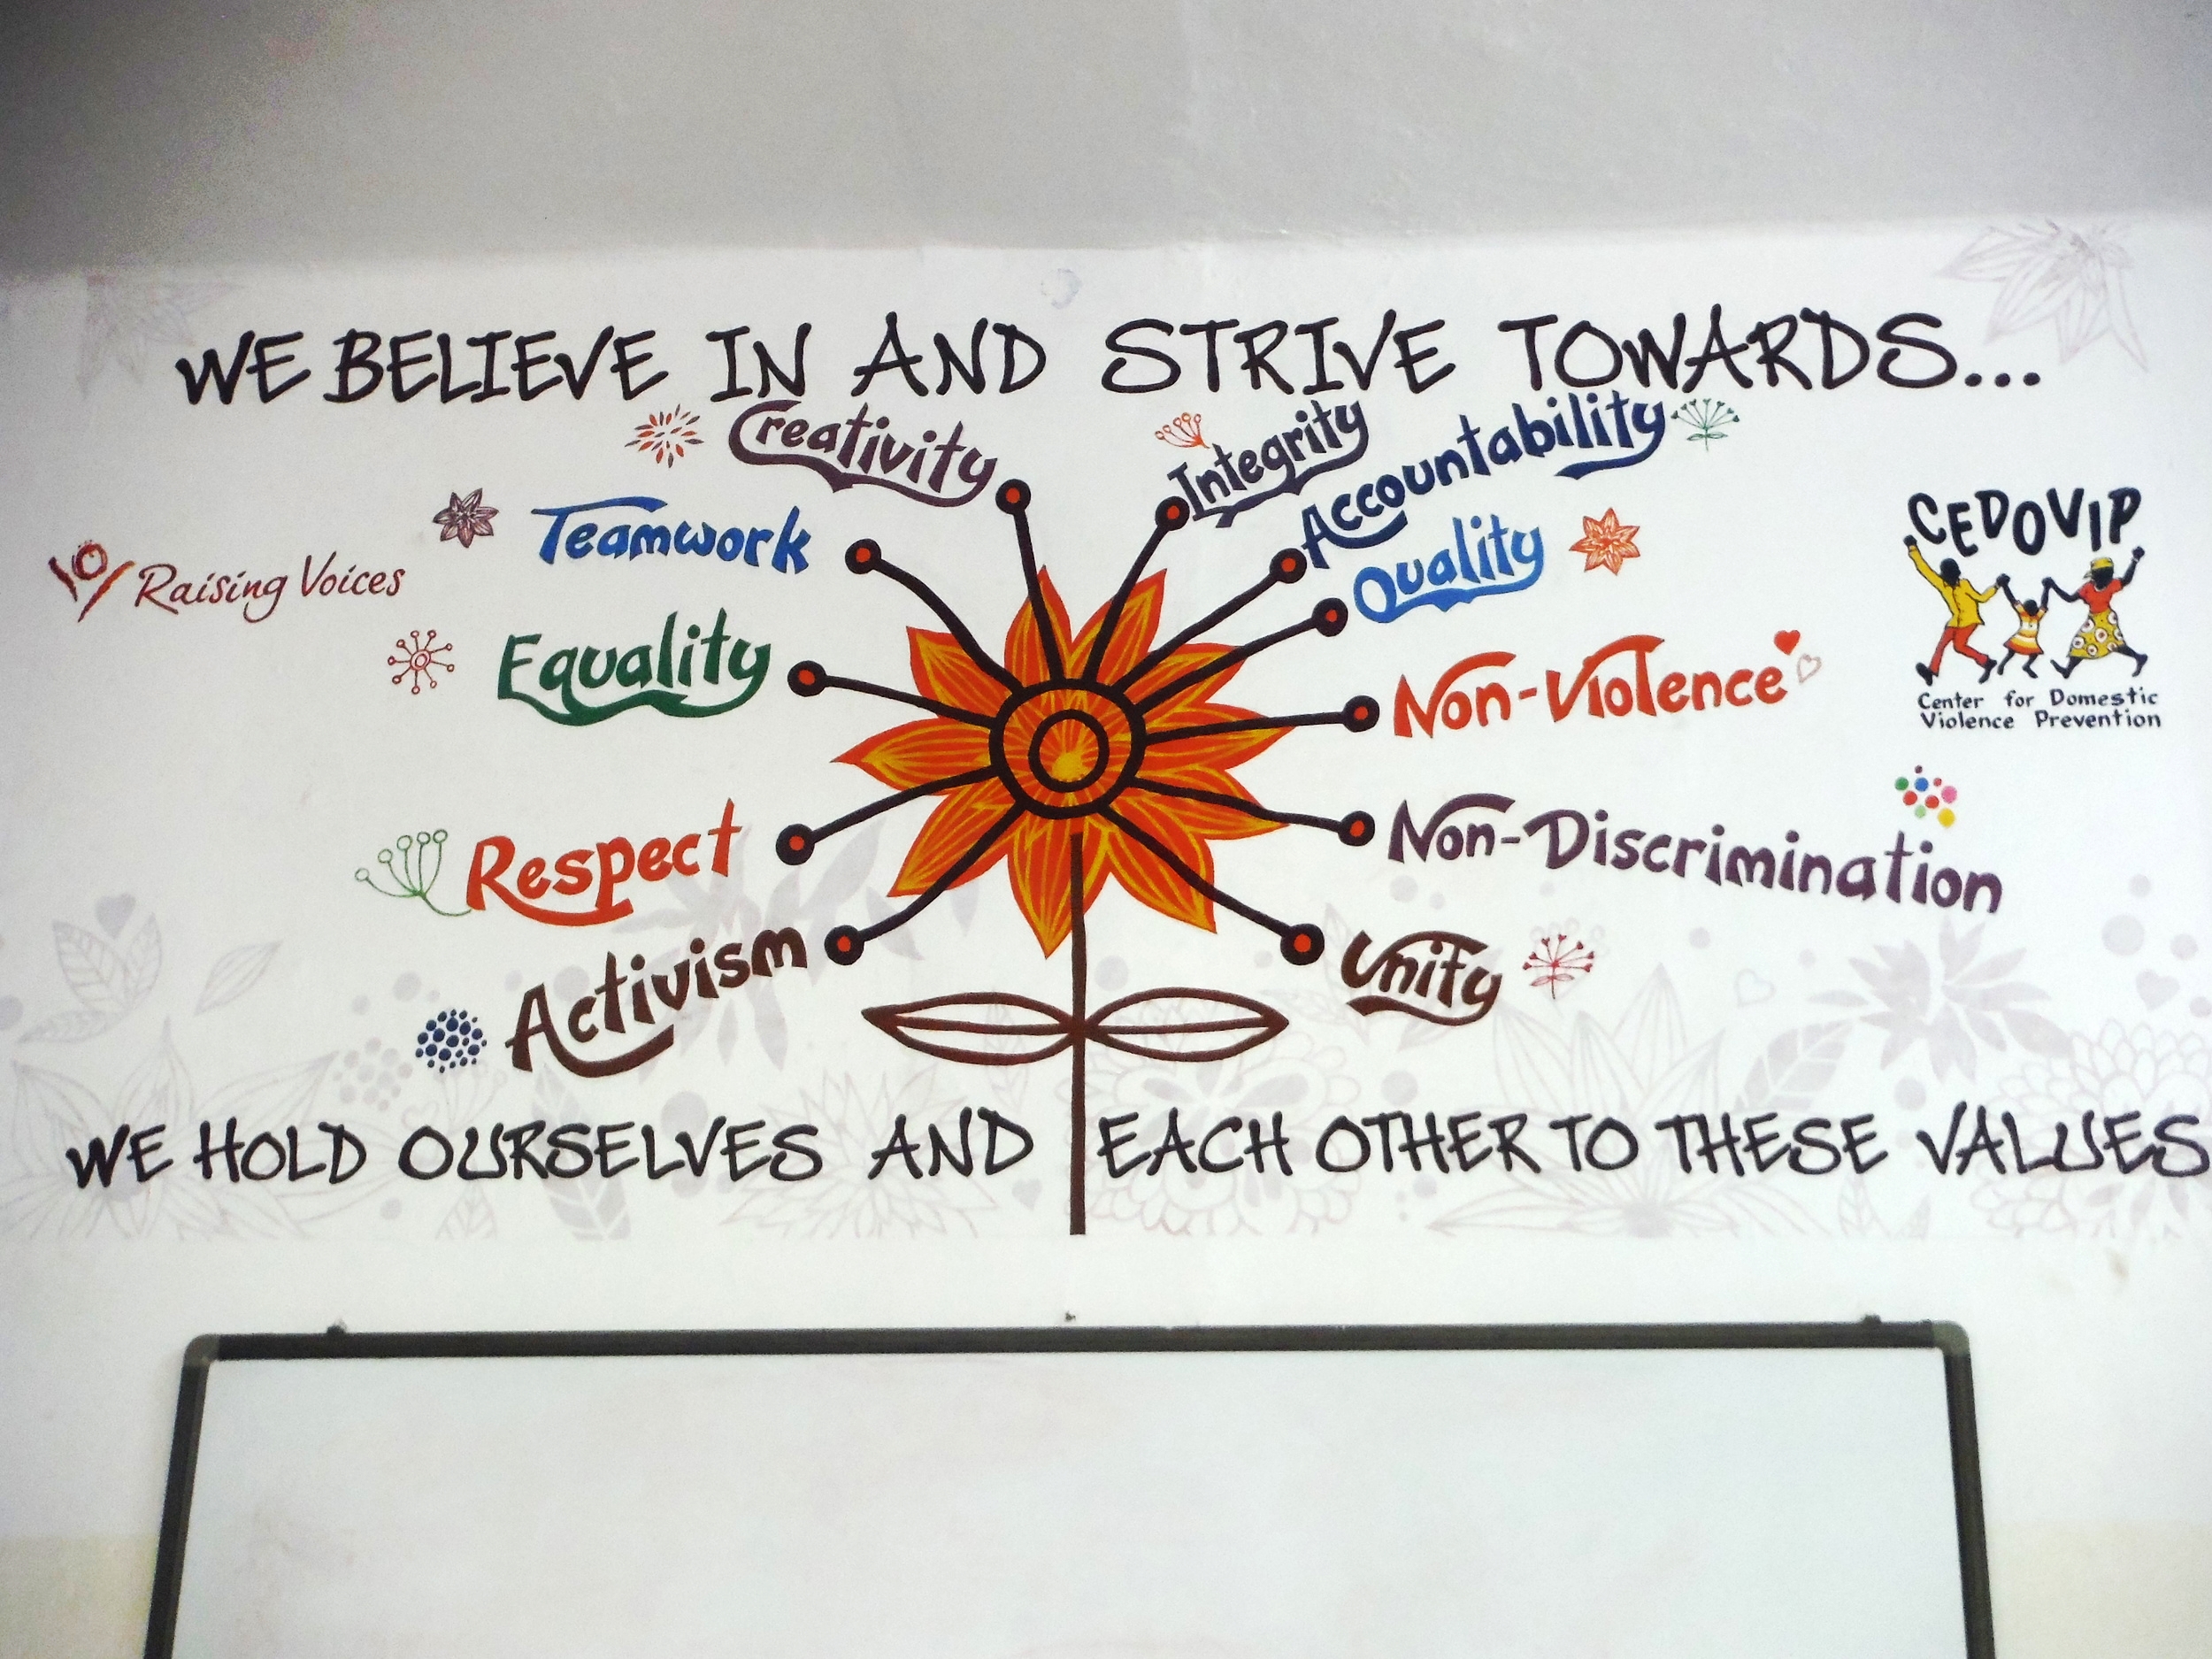 WE BELIEVE IN AND STRIVE TOWARDS...
Creativity
Teamwork
Equality
Respect
Activism
Integrity
Accountability
Quality
Non-Violence
Non-Discrimination
Unity
Raising Voices
CEDOVIP
Center for Domestic
Violence Prevention
WE HOLD OURSELVES AND EACH OTHER TO THESE VALUES